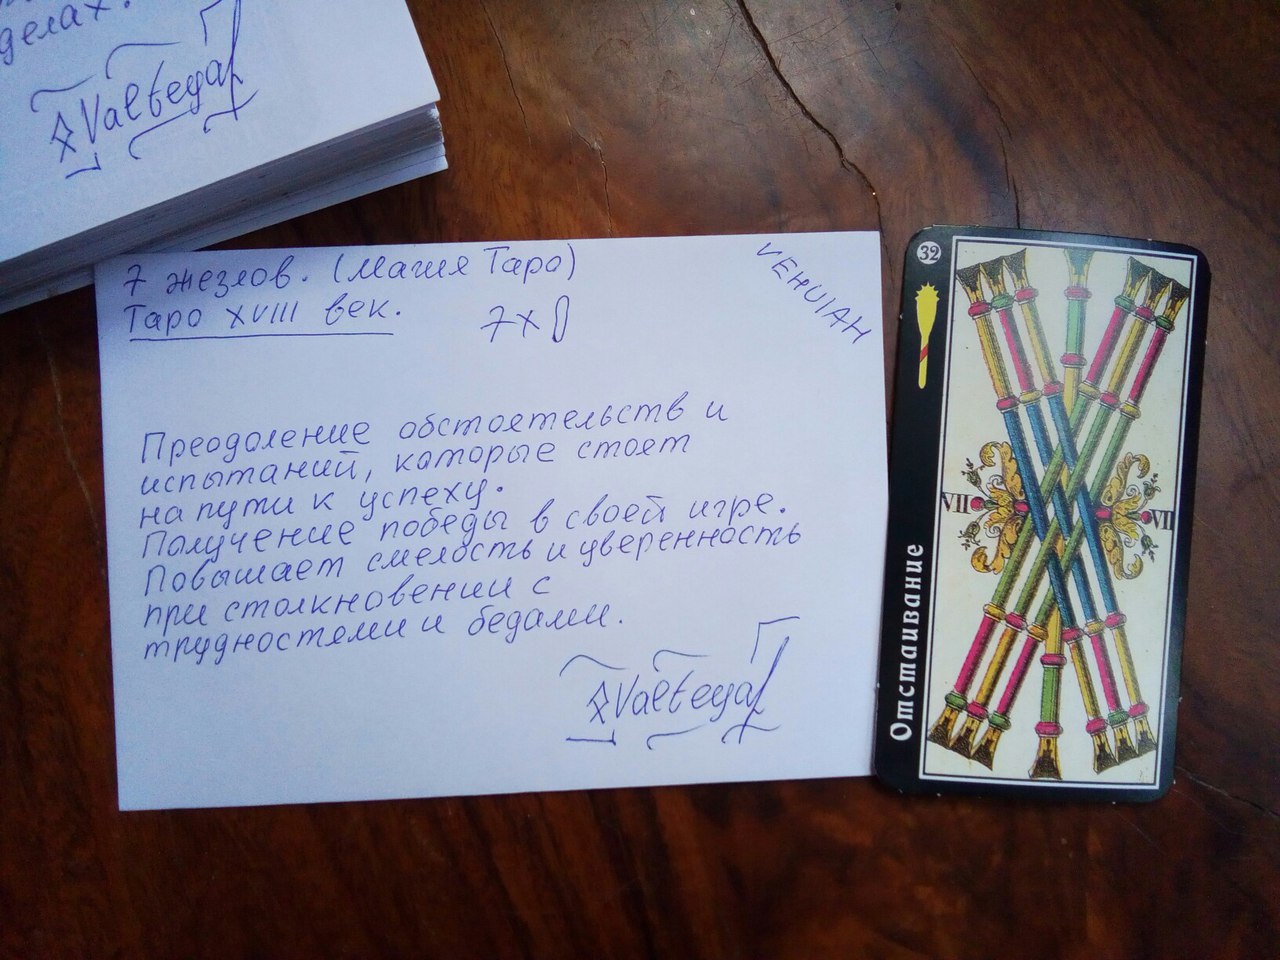 делах.
Valtegal
7 жезлов. (Магия Таро)
Таро XVIII век.
7x
VEHUIAH
Преодоление обстоятельств и
испытаний, которые стоят
на пути к успеху.
Получение победы в своей игре.
Повышает смелость и уверенность
при столкновении с
трудностями и бедами.
Valtegal
32
VII
VII
Отстаивание